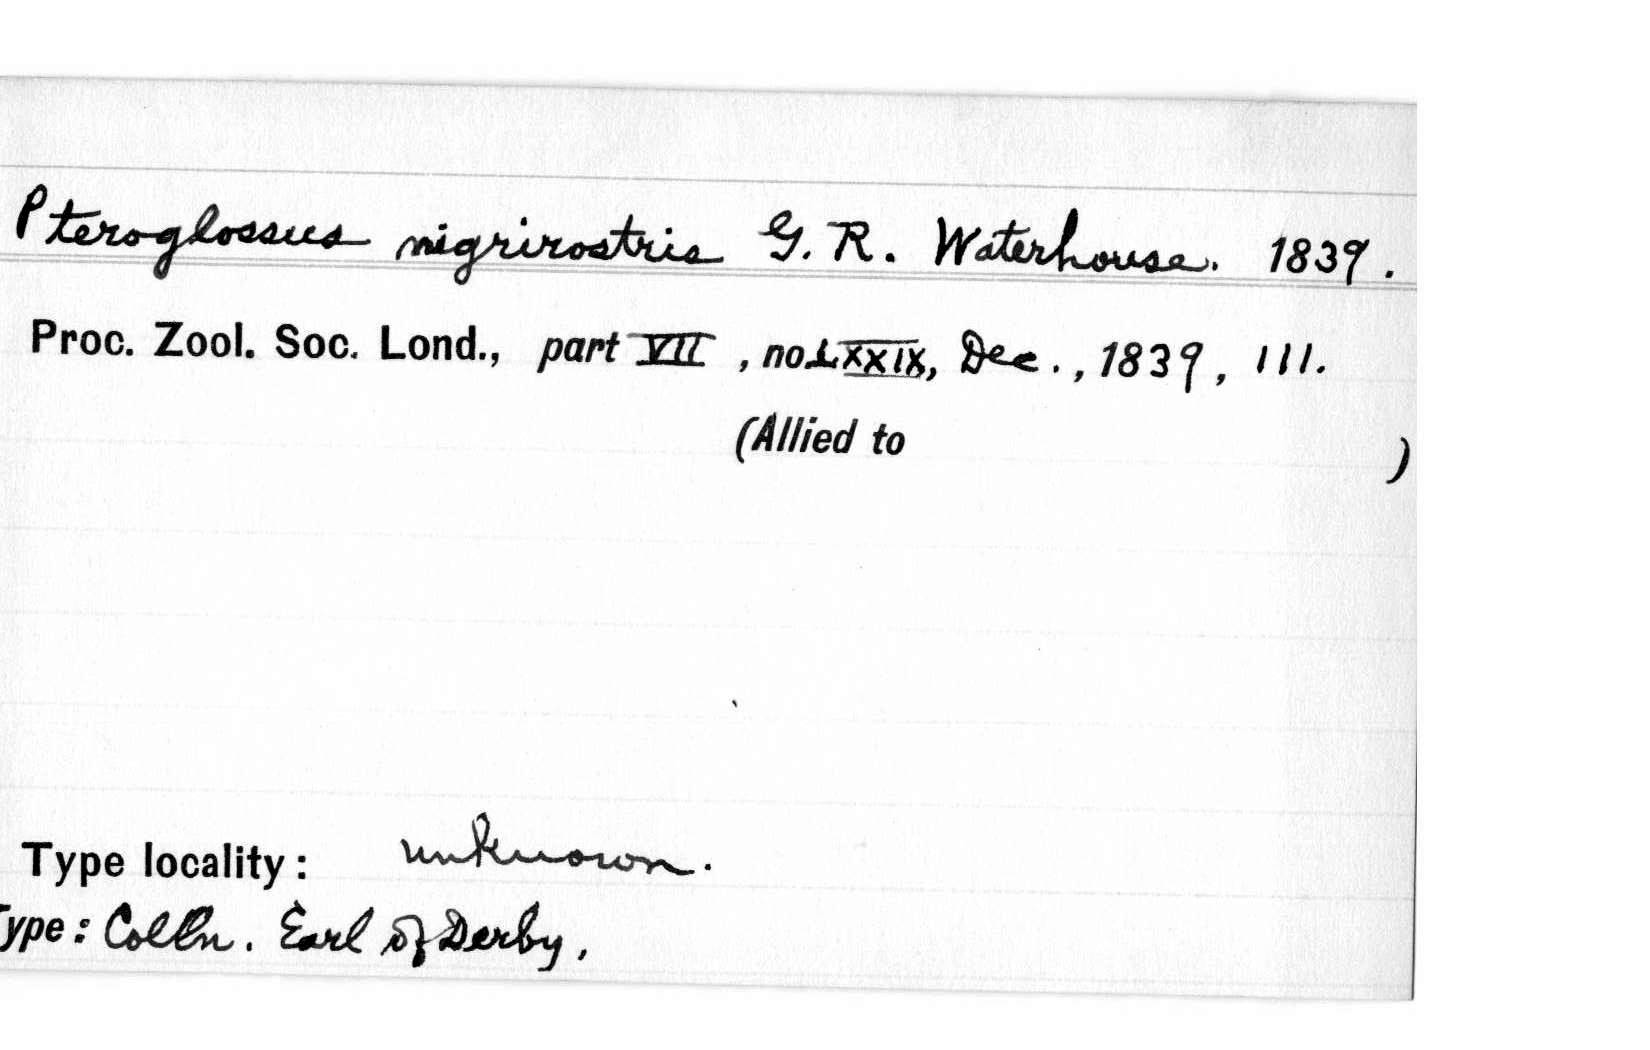 Pteroglossus nigrirostris G. R. Waterhouse. 1839.
Proc. Zool. Soc. Lond., part VII, no LXXIX, Dec., 1839, 111.
(Allied to )
Type locality: unknown.
Type: Colln. Earl of Derby,